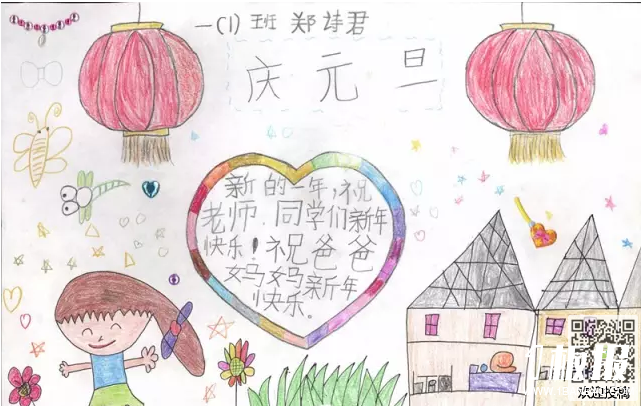 一(1)班 郑诗君
庆元旦
新的一年，祝
老师、同学们新年
快乐！祝爸爸
妈妈新年
快乐。